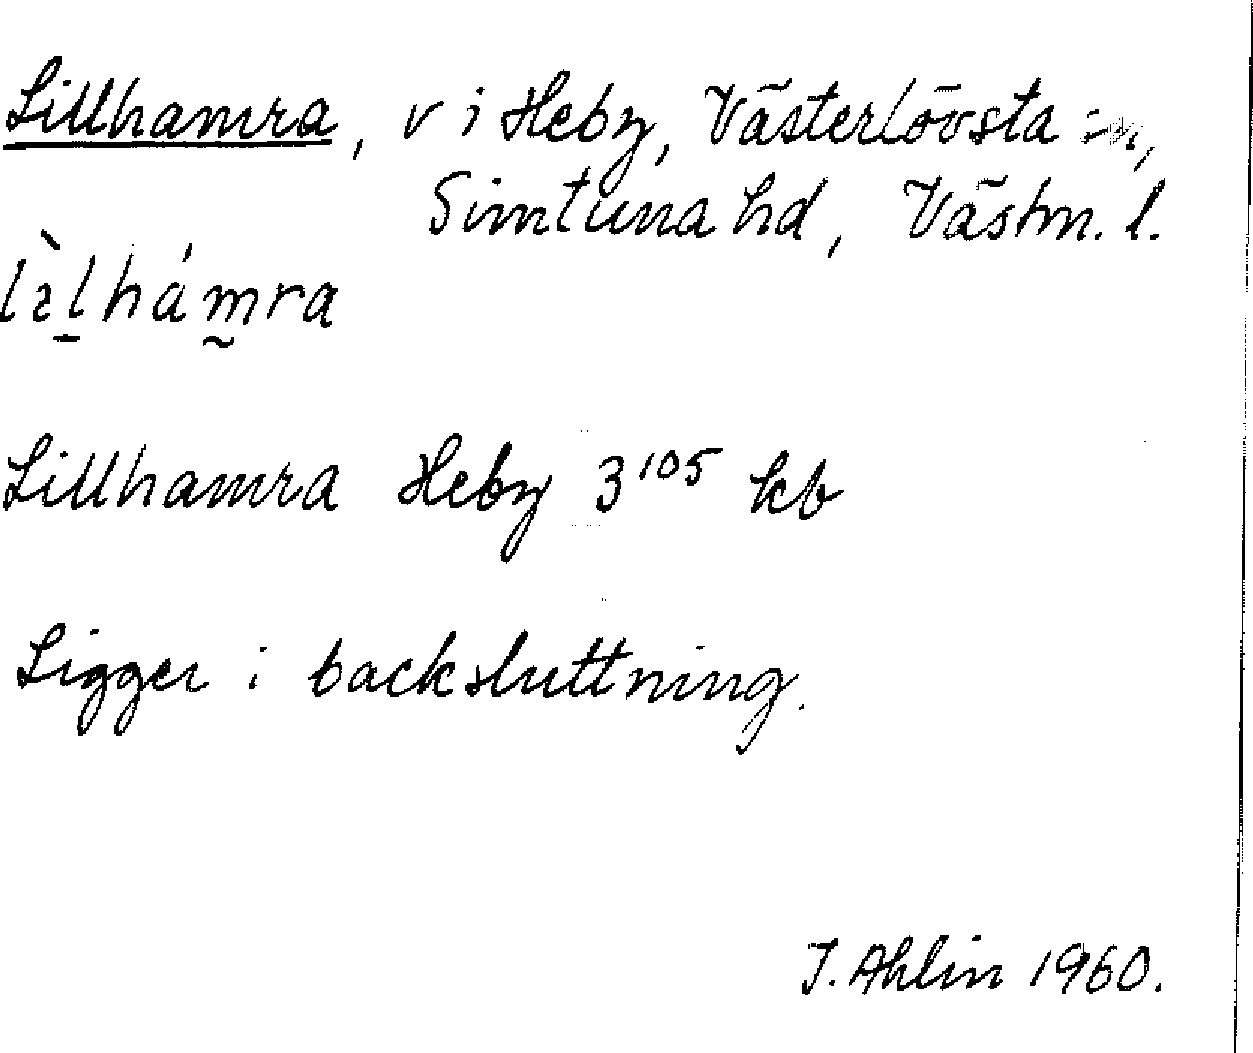 Lillhamra, v i Heby, Västerlövsta sn,
Simtuna hd, Västm. l.
lɛ̀l̠hám̰ra
Lillhamra Heby 3¹⁰⁵ kb
Ligger i backsluttning.
J. Ahlin 1960.